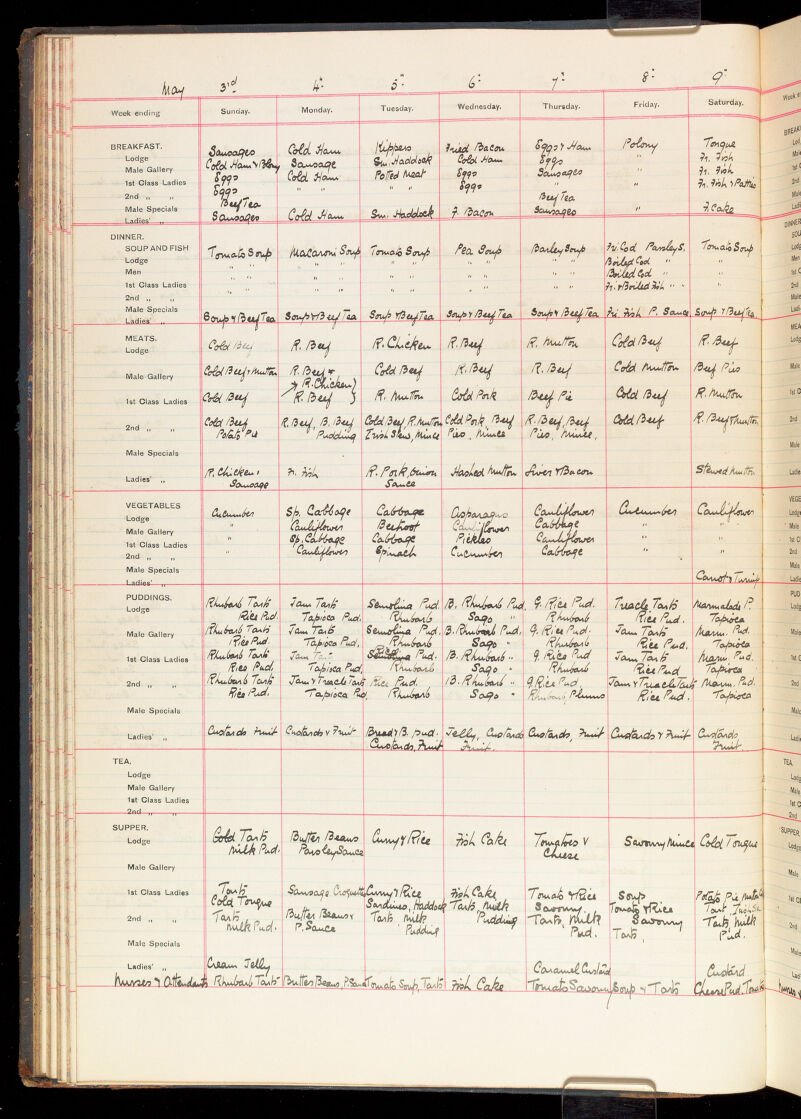 May 3rd 4th 5th 6th 7th 8th 9th
Week ending Sunday. Monday. Tuesday. Wednesday. Thursday. Friday. Saturday.
BREAKFAST.
Lodge Sausages Cold Ham Kippers Fried Bacon Eggs & Ham Polony Tongue
Male Gallery Cold Ham & Polony Sausage Sm. Haddock Cold Ham Eggs " Fr. Fish
1st Class Ladies Eggs Cold Ham Poted Meat Eggs Sausages " Fr. Fish
2nd " " Eggs " " " " Eggs " Fr. Fish & Patties
Male Specials Beef Tea Beef Tea
Ladies' " Sausages Cold Ham Sm. Haddock F. Bacon Sausages " F. Cake
DINNER.
SOUP AND FISH
Lodge Tomato Soup Macaroni Soup Tomato Soup Pea Soup Barley Soup Fri. Cod Parsley S. Tomato Soup
Men " " " " " " " " " " Boiled Cod " "
1st Class Ladies " " " " " " " " " " Boiled Cod " "
2nd " " " " " " " " " " " " Fr. & Boiled Fish " " "
Male Specials
Ladies' " Soup & Beef Tea Soup & Beef Tea Soup & Beef Tea Soup & Beef Tea Soup & Beef Tea Fri. Fish P. Sauce Soup & Beef Tea
MEATS.
Lodge Cold Beef R. Beef R. Chicken R. Beef R. Mutton Cold Beef R. Beef
Male Gallery Cold Beef & Mutton R. Beef & R. Chicken Cold Beef R. Beef R. Beef Cold Mutton Beef Pies
1st Class Ladies Cold Beef R. Beef R. Mutton Cold Pork Beef Pie Cold Beef R. Mutton
2nd " " Cold Beef R. Beef, B. Beef Cold Beef, R. Mutton Cold Pork, Beef R. Beef, Beef Cold Beef R. Beef & Mutton
Potato Pie Pudding Irish Stew, Mince Pies, Mince Pies, Mince,
Male Specials
Ladies' " R. Chicken, Fr. Fish R. Pork, Onion Hashed Mutton Liver & Bacon Stewed Mutton
Sausage Sauce
VEGETABLES
Lodge Cucumber Sp. Cabbage Cabbage Asparagus Cauliflower Cucumber Cauliflower
Male Gallery " Cauliflower Beetroot Cauliflower Cabbage " "
1st Class Ladies " Sp. Cabbage Cabbage Pickles Cauliflower " "
2nd " " " Cauliflower Spinach Cucumber Cabbage " "
Male Specials
Ladies' " Carrot & Turnip
PUDDINGS.
Lodge Rhubarb Tarts Jam Tarts Semolina Pud. B. Rhubarb Pud. G. Rice Pud. Treacle Tarts Marmalade P.
Rice Pud. Tapioca Pud. Rhubarb Sago " Rhubarb Rice Pud. Tapioca
Male Gallery Rhubarb Tarts Jam Tarts Semolina Pud. B. Rhubarb Pud. G. Rice Pud. Jam Tarts Marm. Pud.
Rice Pud. Tapioca Pud. Rhubarb Sago " Rhubarb Rice Pud. Tapioca
1st Class Ladies Rhubarb Tarts Jam Tarts Rice Pud. B. Rhubarb " G. Rice Pud. Jam Tarts Marm. Pud.
Rice Pud. Tapioca Pud. Rhubarb Sago " Rhubarb Rice Pud Tapioca
2nd " " Rhubarb Tarts Jam & Treacle Tarts Rice Pud. B. Rhubarb " G. Rice Pud Jam & Treacle Tarts Marm. Pud.
Rice Pud. Tapioca Pud. Rhubarb Sago " Rhubarb, Plums Rice Pud. Tapioca
Male Specials
Ladies' " Custards Fruit Custards & Fruit Bread & B. pud. Jelly, Custards Custards, Fruit Custards & Fruit Custards,
Custards, Fruit Fruit Fruit
TEA.
Lodge
Male Gallery
1st Class Ladies
2nd " "
SUPPER.
Lodge Cold Tarts Butter Beans Curry & Rice Fish Cake Tomatoes & Savoury Mince Cold Tongue
Milk Pud. Parsley Sauce Cheese
Male Gallery
1st Class Ladies Tarts Sausage Croquettes Curry & Rice Fish Cake Tomato & Rice Soup Potato Pie
Cold Tongue Sardines, Haddock Tarts, Milk Savoury Tomato & Rice Tart
2nd " " Tarts Butter Beans & Tarts Milk Pudding Tarts, Milk Savoury Tarts, Milk
Milk Pud. P. Sauce Pudding Pud. Tarts, Pud.
Male Specials
Ladies' " Cream Jelly Caramel Custard Custard
Nurses & Attendants Rhubarb Tarts Butter Beans, P. Sauce Tomato Soup, Tarts Fish Cake Tomato Savoury Soup & Tarts Cheese Pud.